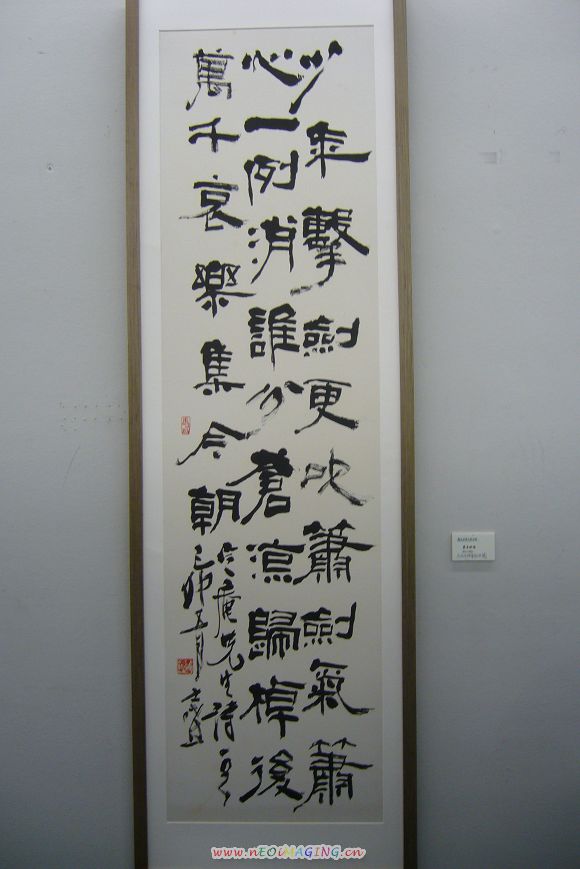 少年擊劍更吹簫劍氣簫
心一例消誰分蒼涼歸棹後
萬千哀樂集今朝
定庵先生詩
己卯五月
www.nEOiMAGiNG.cn